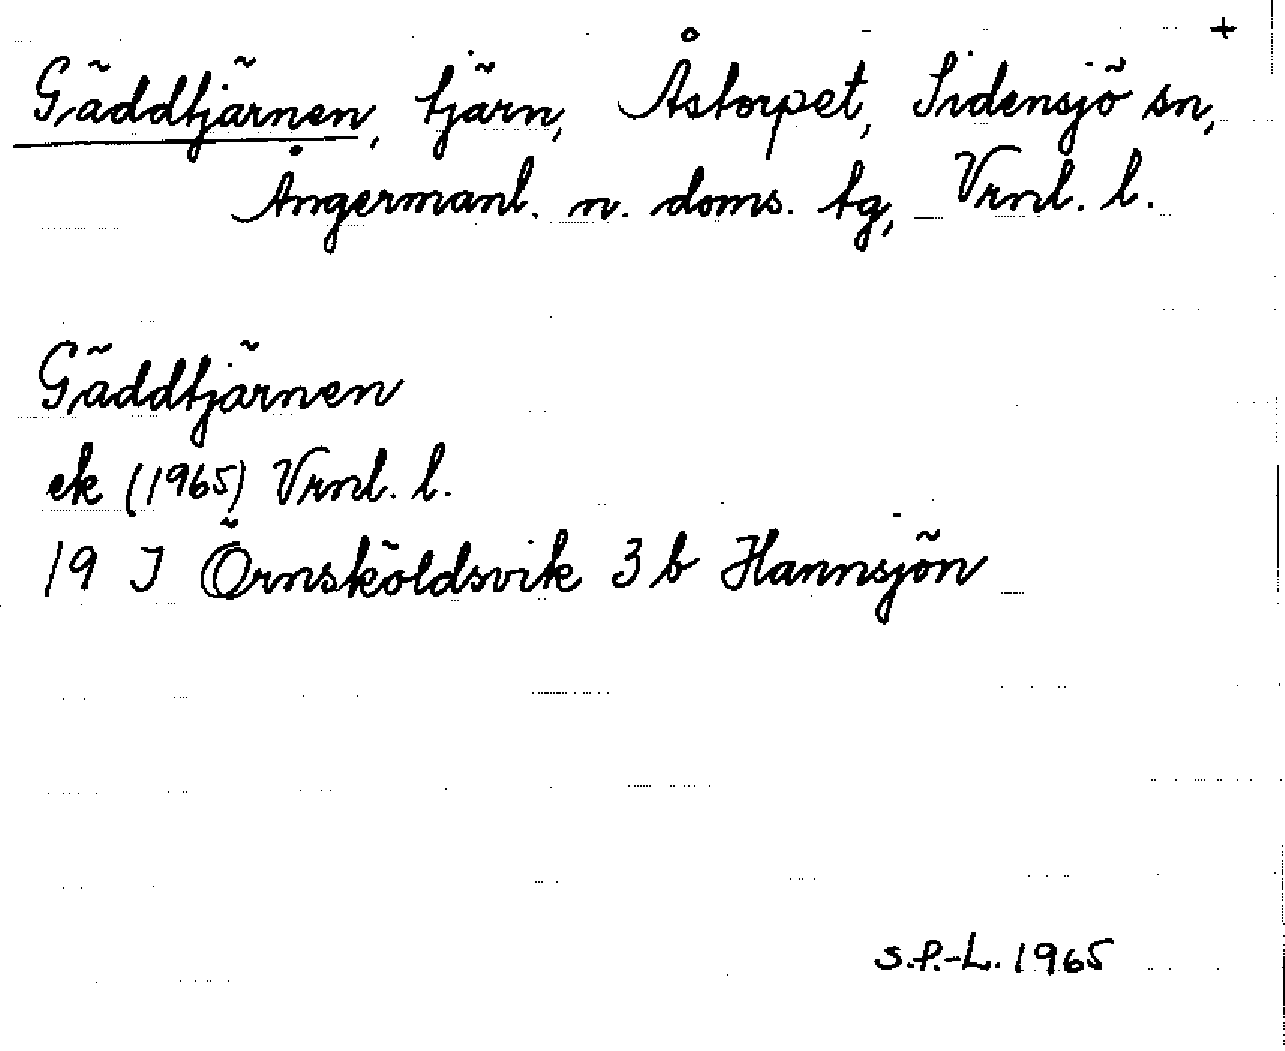 +
Gäddtjärnen, tjärn, Åstorpet, Sidensjö sn,
Ångermanl. n. doms. tg, Vrnl. l.
Gäddtjärnen
ek (1965) Vrnl. l.
19 J Örnsköldsvik 3 b Hannsjön
S.P.-L. 1965